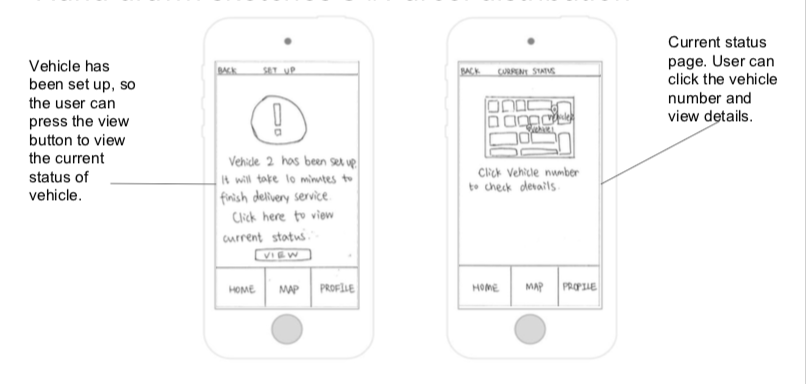 Vehicle has
been set up, so
the user can
press the view
button to view
the current
status of
vehicle.
BACK SET UP
!
Vehicle 2 has been set up.
It will take 10 minutes to
finish delivery service.
Click here to view
current status.
VIEW
HOME MAP PROFILE
BACK CURRENT STATUS
Click Vehicle number
to check details.
HOME MAP PROFILE
Current status
page. User can
click the vehicle
number and
view details.